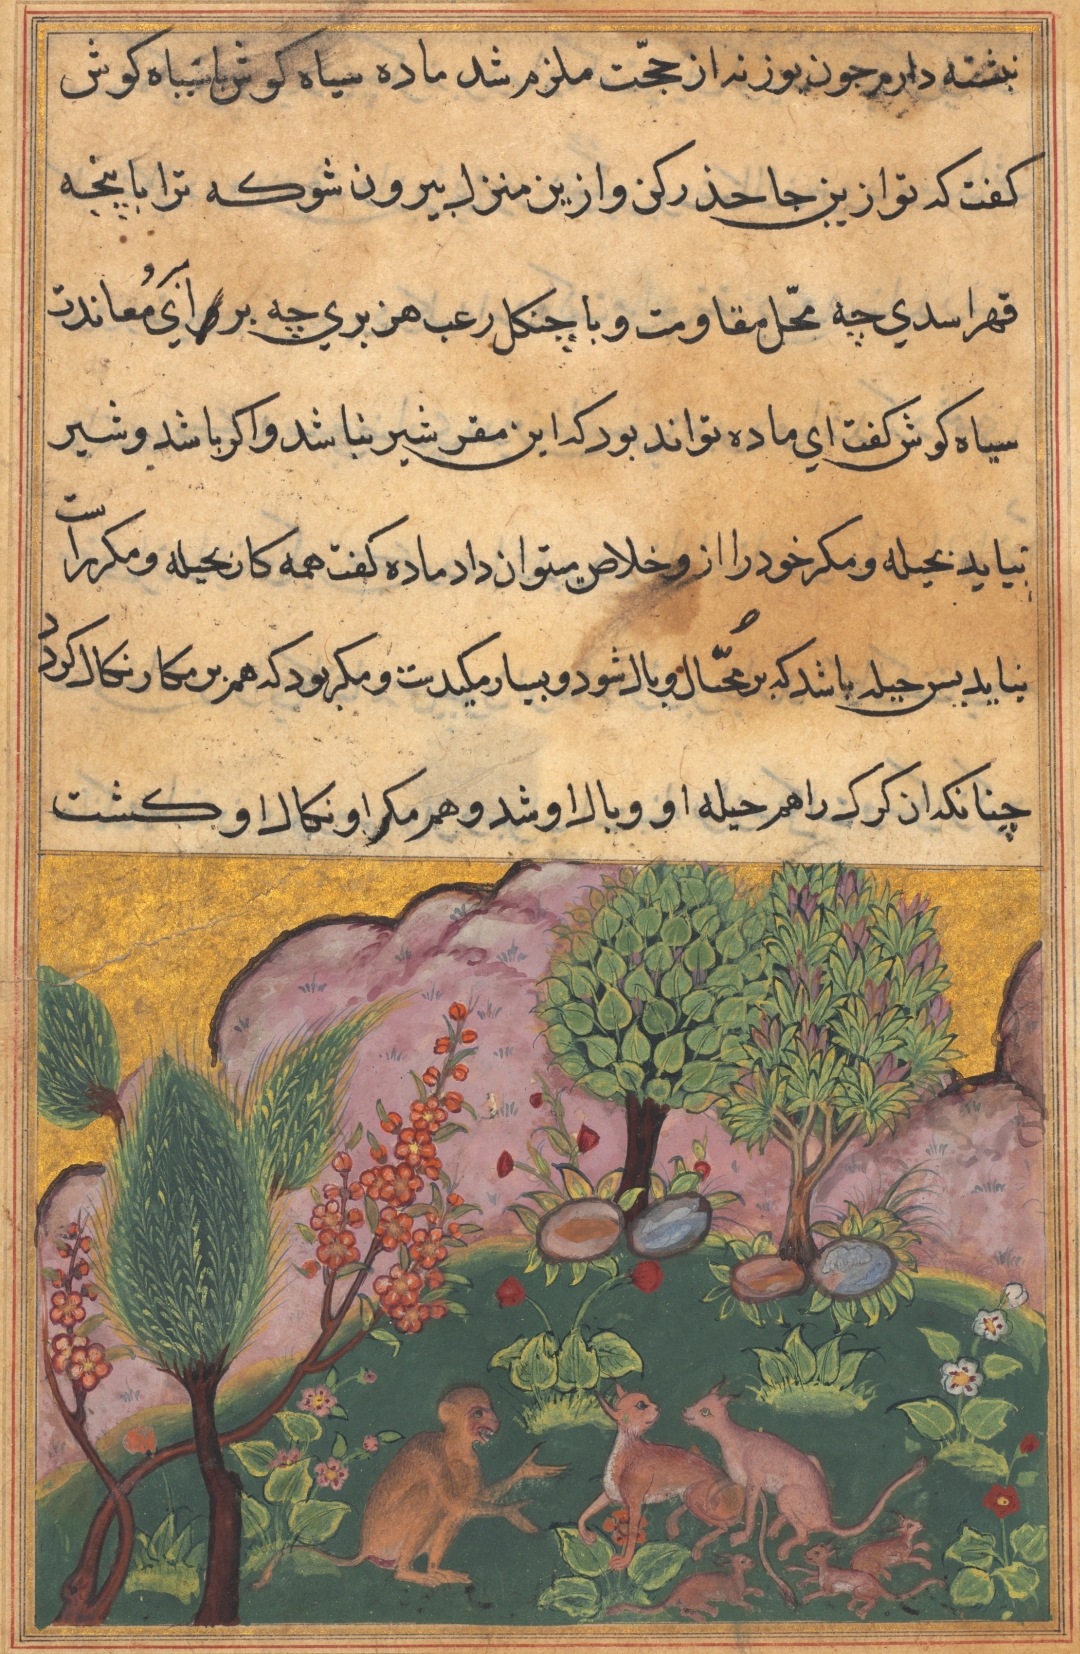 نبشته دارم چون بوزنه از حجّت ملزم شد ماده سیاه کوش با سیاه کوش
کفت که تو ازین جا حذر کن و ازین منزل بیرون شو که ترا با پنجه
قهر اسدي چه محّل مقاومت و با چنکل رعب هزبري چه بر و مراي مُعاندت
سیاه کوش کفت اي ماده تواند بود که این مقر شیر نباشد و اکر باشد و شیر
بیاید بحیله و مکر خود را از و خلاص میتوان داد ماده کفت همه کار بحیله و مکر راست
نیاید بس حیله باشد که بر محّال وبال شود و بسیار مکیدت و مکر بود که هم بر مکار نکال کردد
چنانکه ان کرک را هم حیله او وبال او شد و هم مکر او نکال او کشت